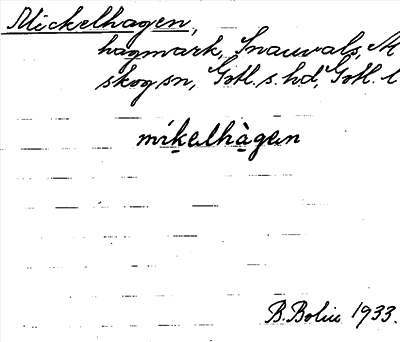 Mickelhagen,
hagmark, Snauvals, M
skogsn, Gotl. s. hd, Gotl. l
mikelhàgen
B. Bolin 1933.